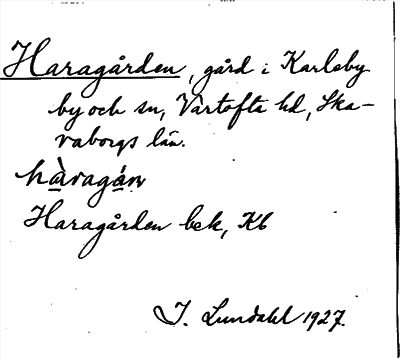 Haragården, gård i Karleby
by och sn, Vartofta hd, Ska-
raborgs län.
hàragán
Haragården bek, Kb
I. Lundahl 1927.